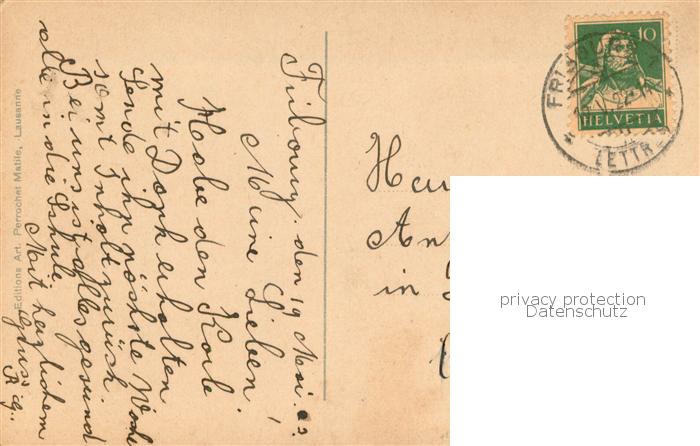 Fribourg, den 19 Mai. 23.
Meine Lieben!
Habe den Korb
mit Dank erhalten
Sende ihn nächste Woche
samt Inhalt zurück.
Bei uns ist alles gesund
alle in die Schule
Mit herzlichem
Gruss
R.g.
Editions Art. Perrochet Matile, Lausanne
10
HELVETIA
LETTR
in
privacy protection
Datenschutz